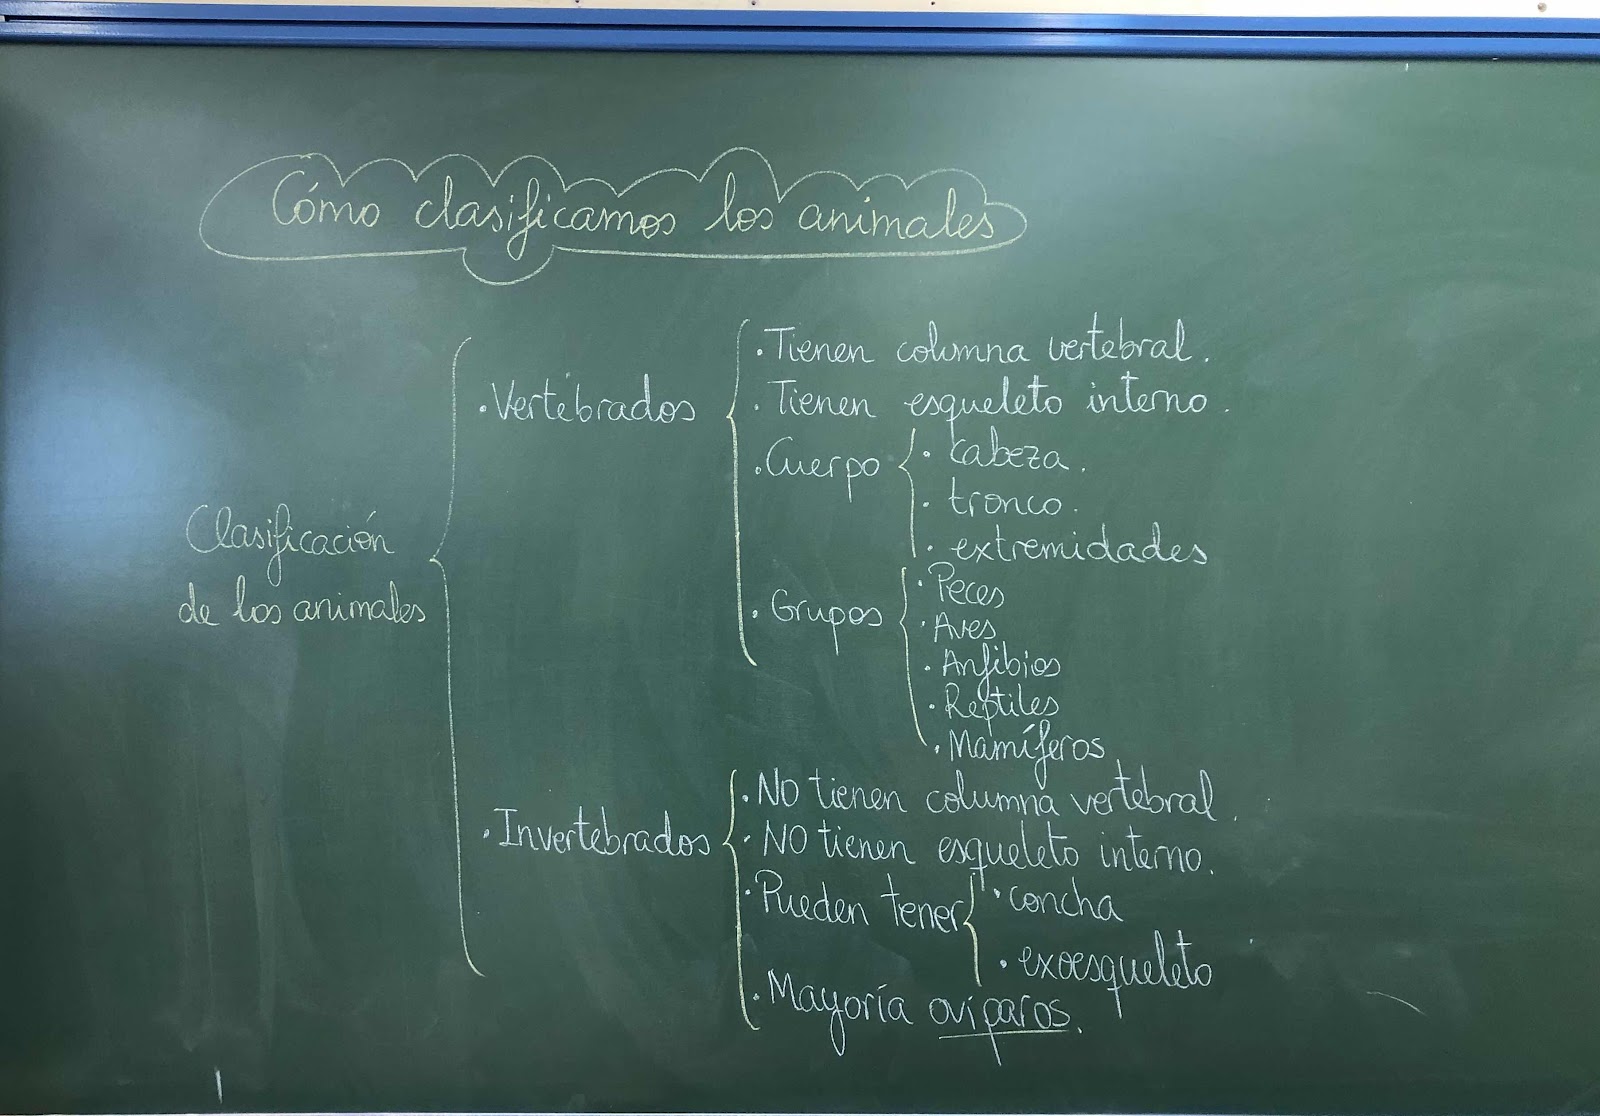 Cómo clasificamos los animales
Clasificación
de los animales
· Vertebrados
· Tienen columna vertebral.
· Tienen esqueleto interno.
· Cuerpo
· cabeza.
· tronco.
· extremidades
· Grupos
· Peces
· Aves
· Anfibios
· Reptiles
· Mamíferos
· Invertebrados
· NO tienen columna vertebral.
· NO tienen esqueleto interno.
· Pueden tener
· concha
· exoesqueleto
· Mayoría ovíparos.